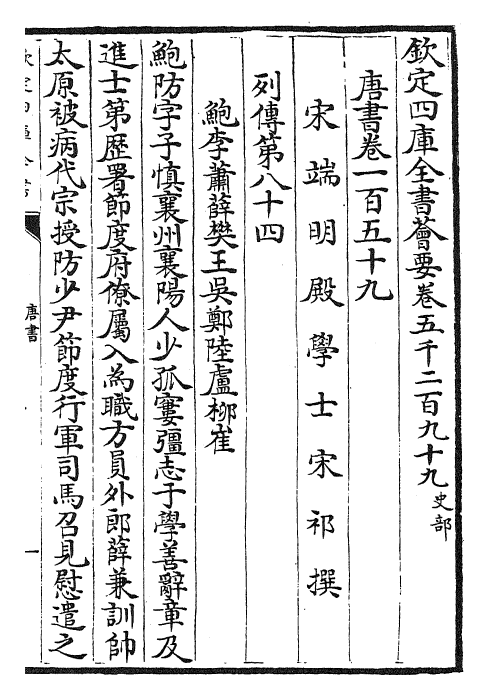 欽定四庫全書薈要卷五千二百九十九 史部
唐書卷一百五十九
宋端明殿學士宋祁撰
列傳第八十四
鮑李蕭薛樊王吳鄭陸盧柳崔
鮑防字子慎襄州襄陽人少孤窶彊志于學善辭章及
進士第歷署節度府僚屬入為職方員外郎薛兼訓帥
太原被病代宗授防少尹節度行軍司馬召見慰遣之
唐書
一